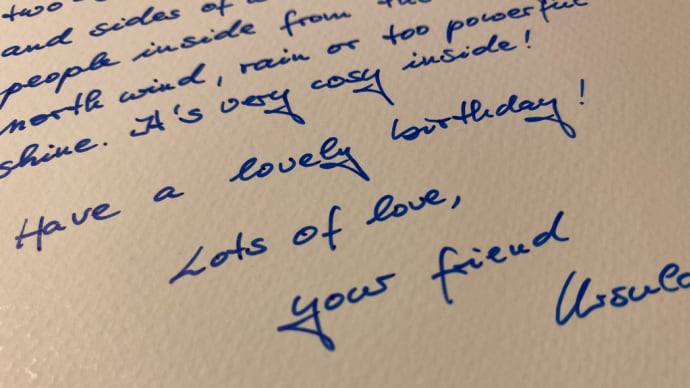 two
and sides of
people inside from the
north wind, rain or too powerful
shine. It's very cosy inside!
Have a lovely birthday!
Lots of love,
your friend
Ursula